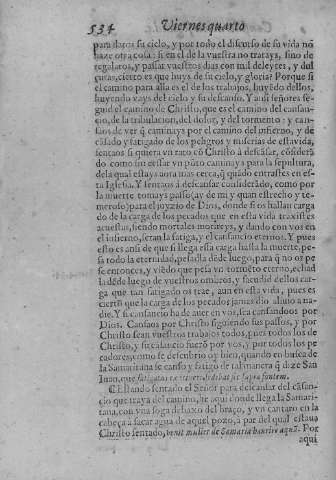 534 Viernes quarto
para daros su cielo, y por todo el discurso de su vida no
haze otra cosa: si en el de la vuestra no tratays, sino de
regalaros, y passar vuestros dias con mil deleytes, y dul
çuras, cierto es que huys de su cielo, y gloria? Porque si
el camino para alla es el de los trabajos, huyẽdo dellos,
huyendo vays del cielo y su descanso. Y assi señores se
guid el camino de Christo, que es el camino del cansan-
cio, de la tribulacion, del dolor, y del tormento: y can-
saos de ver q̃ caminays por el camino del infierno, y de
cãsado y fatigado de los peligros y miserias de esta vida,
sentaos si quiera vn rato cõ Christo à descãsar, cõsiderã
do como sin cessar vn pũto caminays para la sepultura,
de la qual estays aora mas cerca, q̃ quãdo entrastes en es-
ta Iglesia. Y sentaos à descansar considerãdo, como por
la muerte tomays passo (ay de mi y quan estrecho y te-
meroso) para el juyzio de Dios, donde si os hallan carga
do de la carga de los pecados que en esta vida traxistes
acuestas, siendo mortales morireys, y dando con vos en
el infierno, seran la fatiga, y el cansancio eternos. Y pues
esto es ansi de que si llega essa carga hasta la muerte, pe-
sa toda la eternidad, pesadla dẽde luego, para q̃ no os pe
se entonces, y viẽdo que pesa vn tormẽto eterno, echad
la dẽde luego de vuestros ombros, y sacudid dellos car-
ga que tan fatigado os trae, aun en esta vida, pues es
cierto que la carga de los pecados jamas dio aliuio a na-
die. Y si cansancio ha de auer en vos, sea cansandoos por
Dios. Cansaos por Christo siguiendo sus passos, y por
Christo sean vuestros trabajos todos, pues todos los de
Christo, y su cãsancio fuerõ por vos, y por todos los pe
cadores, como se descubrio oy bien, quando en busca de
la Samaritana se canso y fatigo de tal manera q̃ dize San
Iuan, que fatigatus ex itinere sedebat sic supra fontem.
Estando sentado el Señor para descansar del cãsan-
cio que traya del camino, he aqui donde llega la Samari-
tana, con vna soga debaxo del braço, y vn cantaro en la
cabeça à sacar agua de aquel pozo, a par del qual estaua
Christo sentado, venit mulier de Samaria haurire aquã. Por
aqui